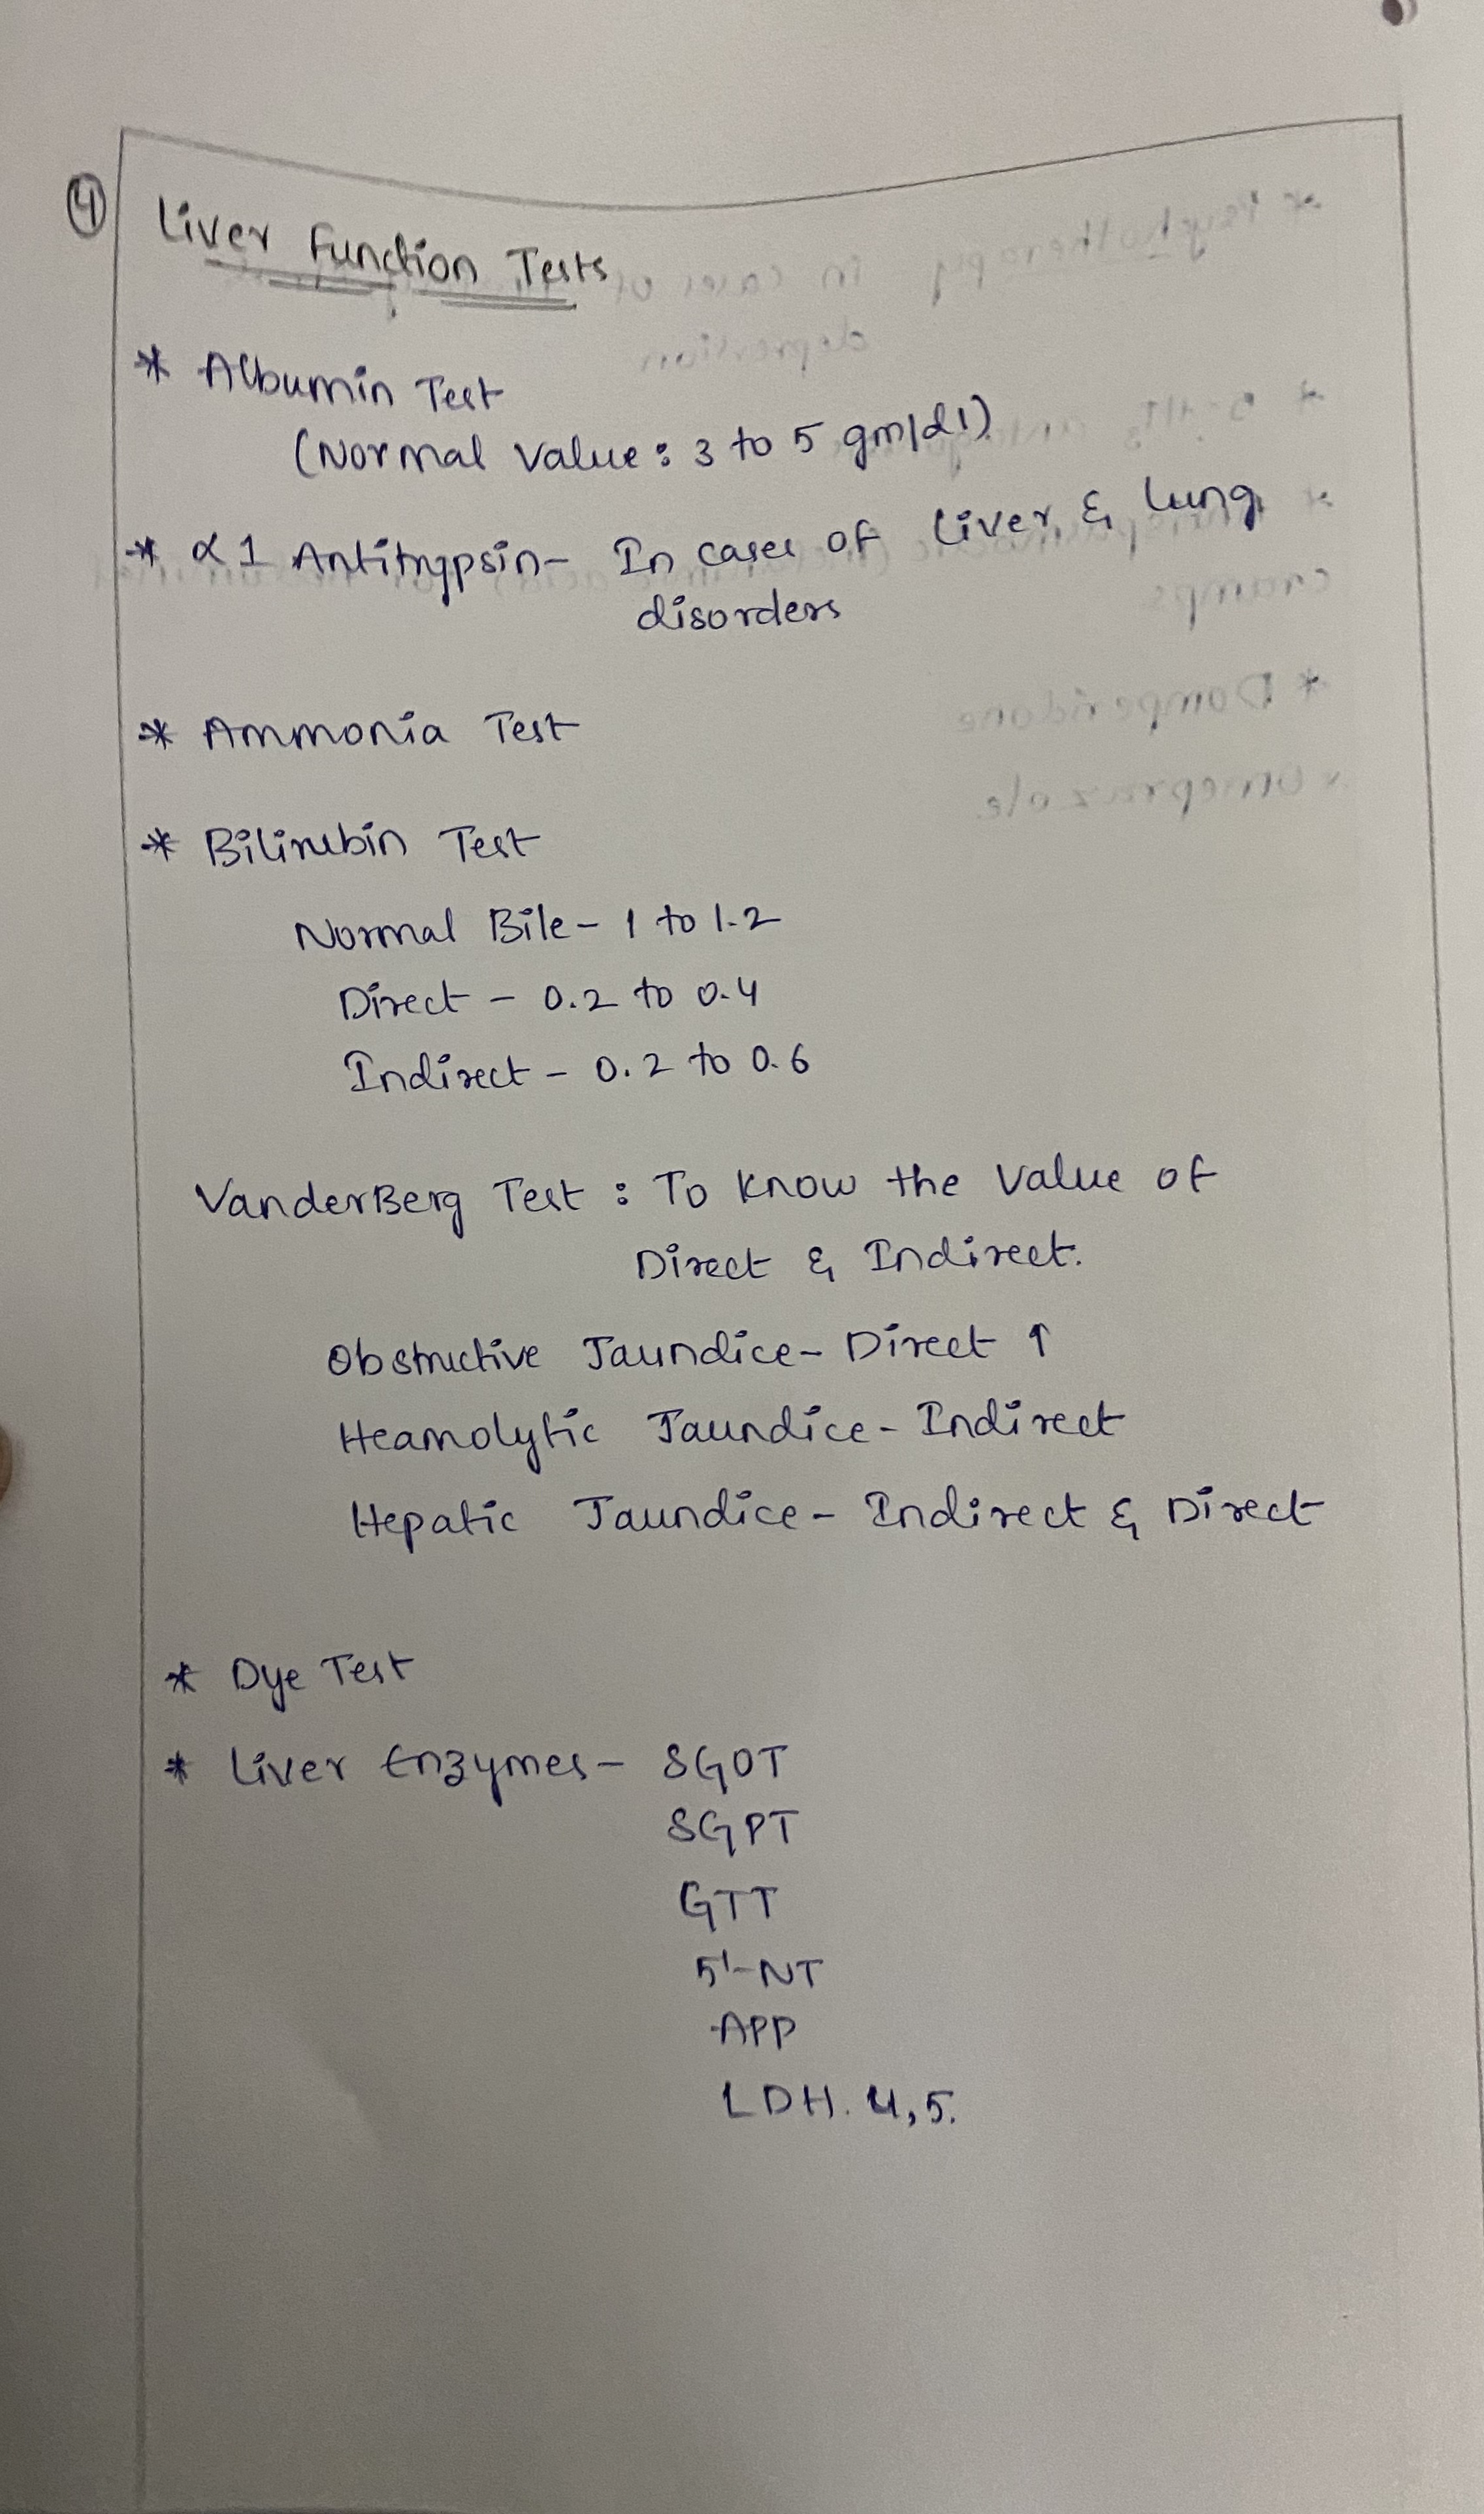 4
Liver Function Tests
* Albumin Test
(Normal Value: 3 to 5 gm/dl)
* α1 Antitrypsin- In cases of Liver & Lung
disorders
* Ammonia Test
* Bilirubin Test
Normal Bile- 1 to 1.2
Direct - 0.2 to 0.4
Indirect - 0.2 to 0.6
VanderBerg Test : To know the value of
Direct & Indirect.
Obstructive Jaundice- Direct ↑
Heamolytic Jaundice- Indirect
Hepatic Jaundice- Indirect & Direct
* Dye Test
* Liver Enzymes- SGOT
SGPT
GTT
5'-NT
APP
LDH. 4,5.